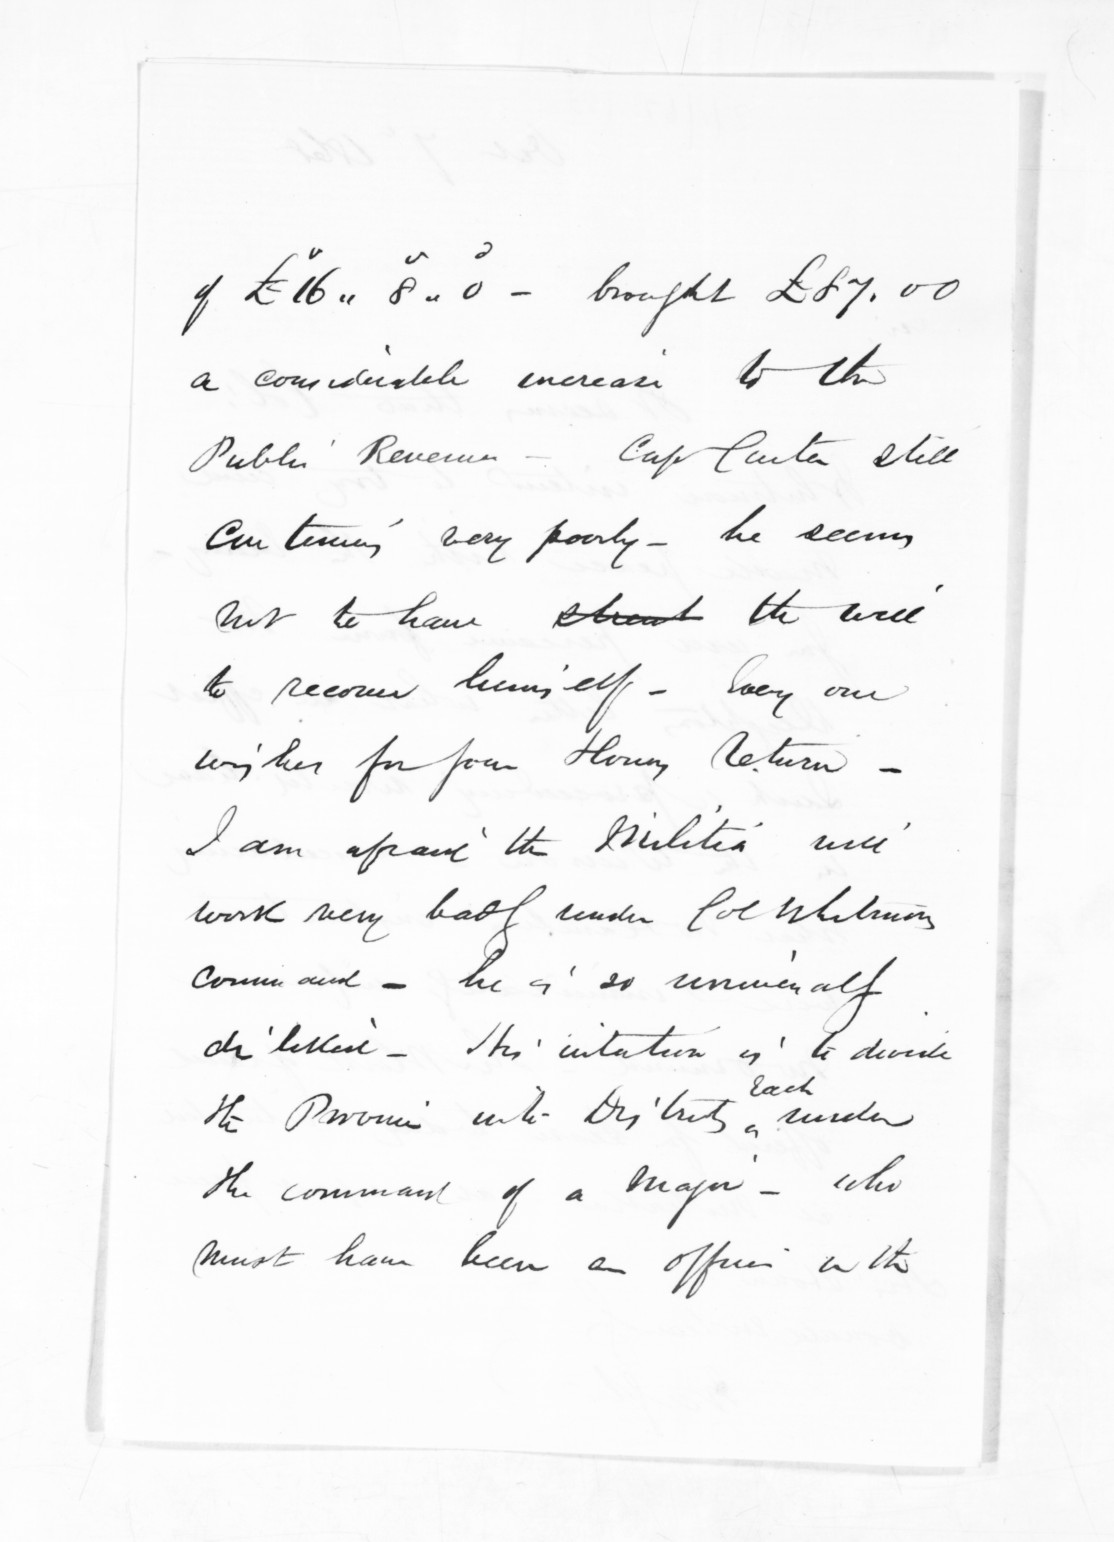 of £16 „ 8 „ 0 – brought £87.00
a considerable increase to the
Public Revenue – Cap Carter still
Continues very poorly – he seems
not to have the will
to recover himself – Every one
wishes for your Honors Return –
I am afraid the Militia will
work very badly under Col Whitmores
command – he is so universally
disliked – His intation is to divide
the Province into Districts Each under
the command of a Major – who
must have been an officer in the